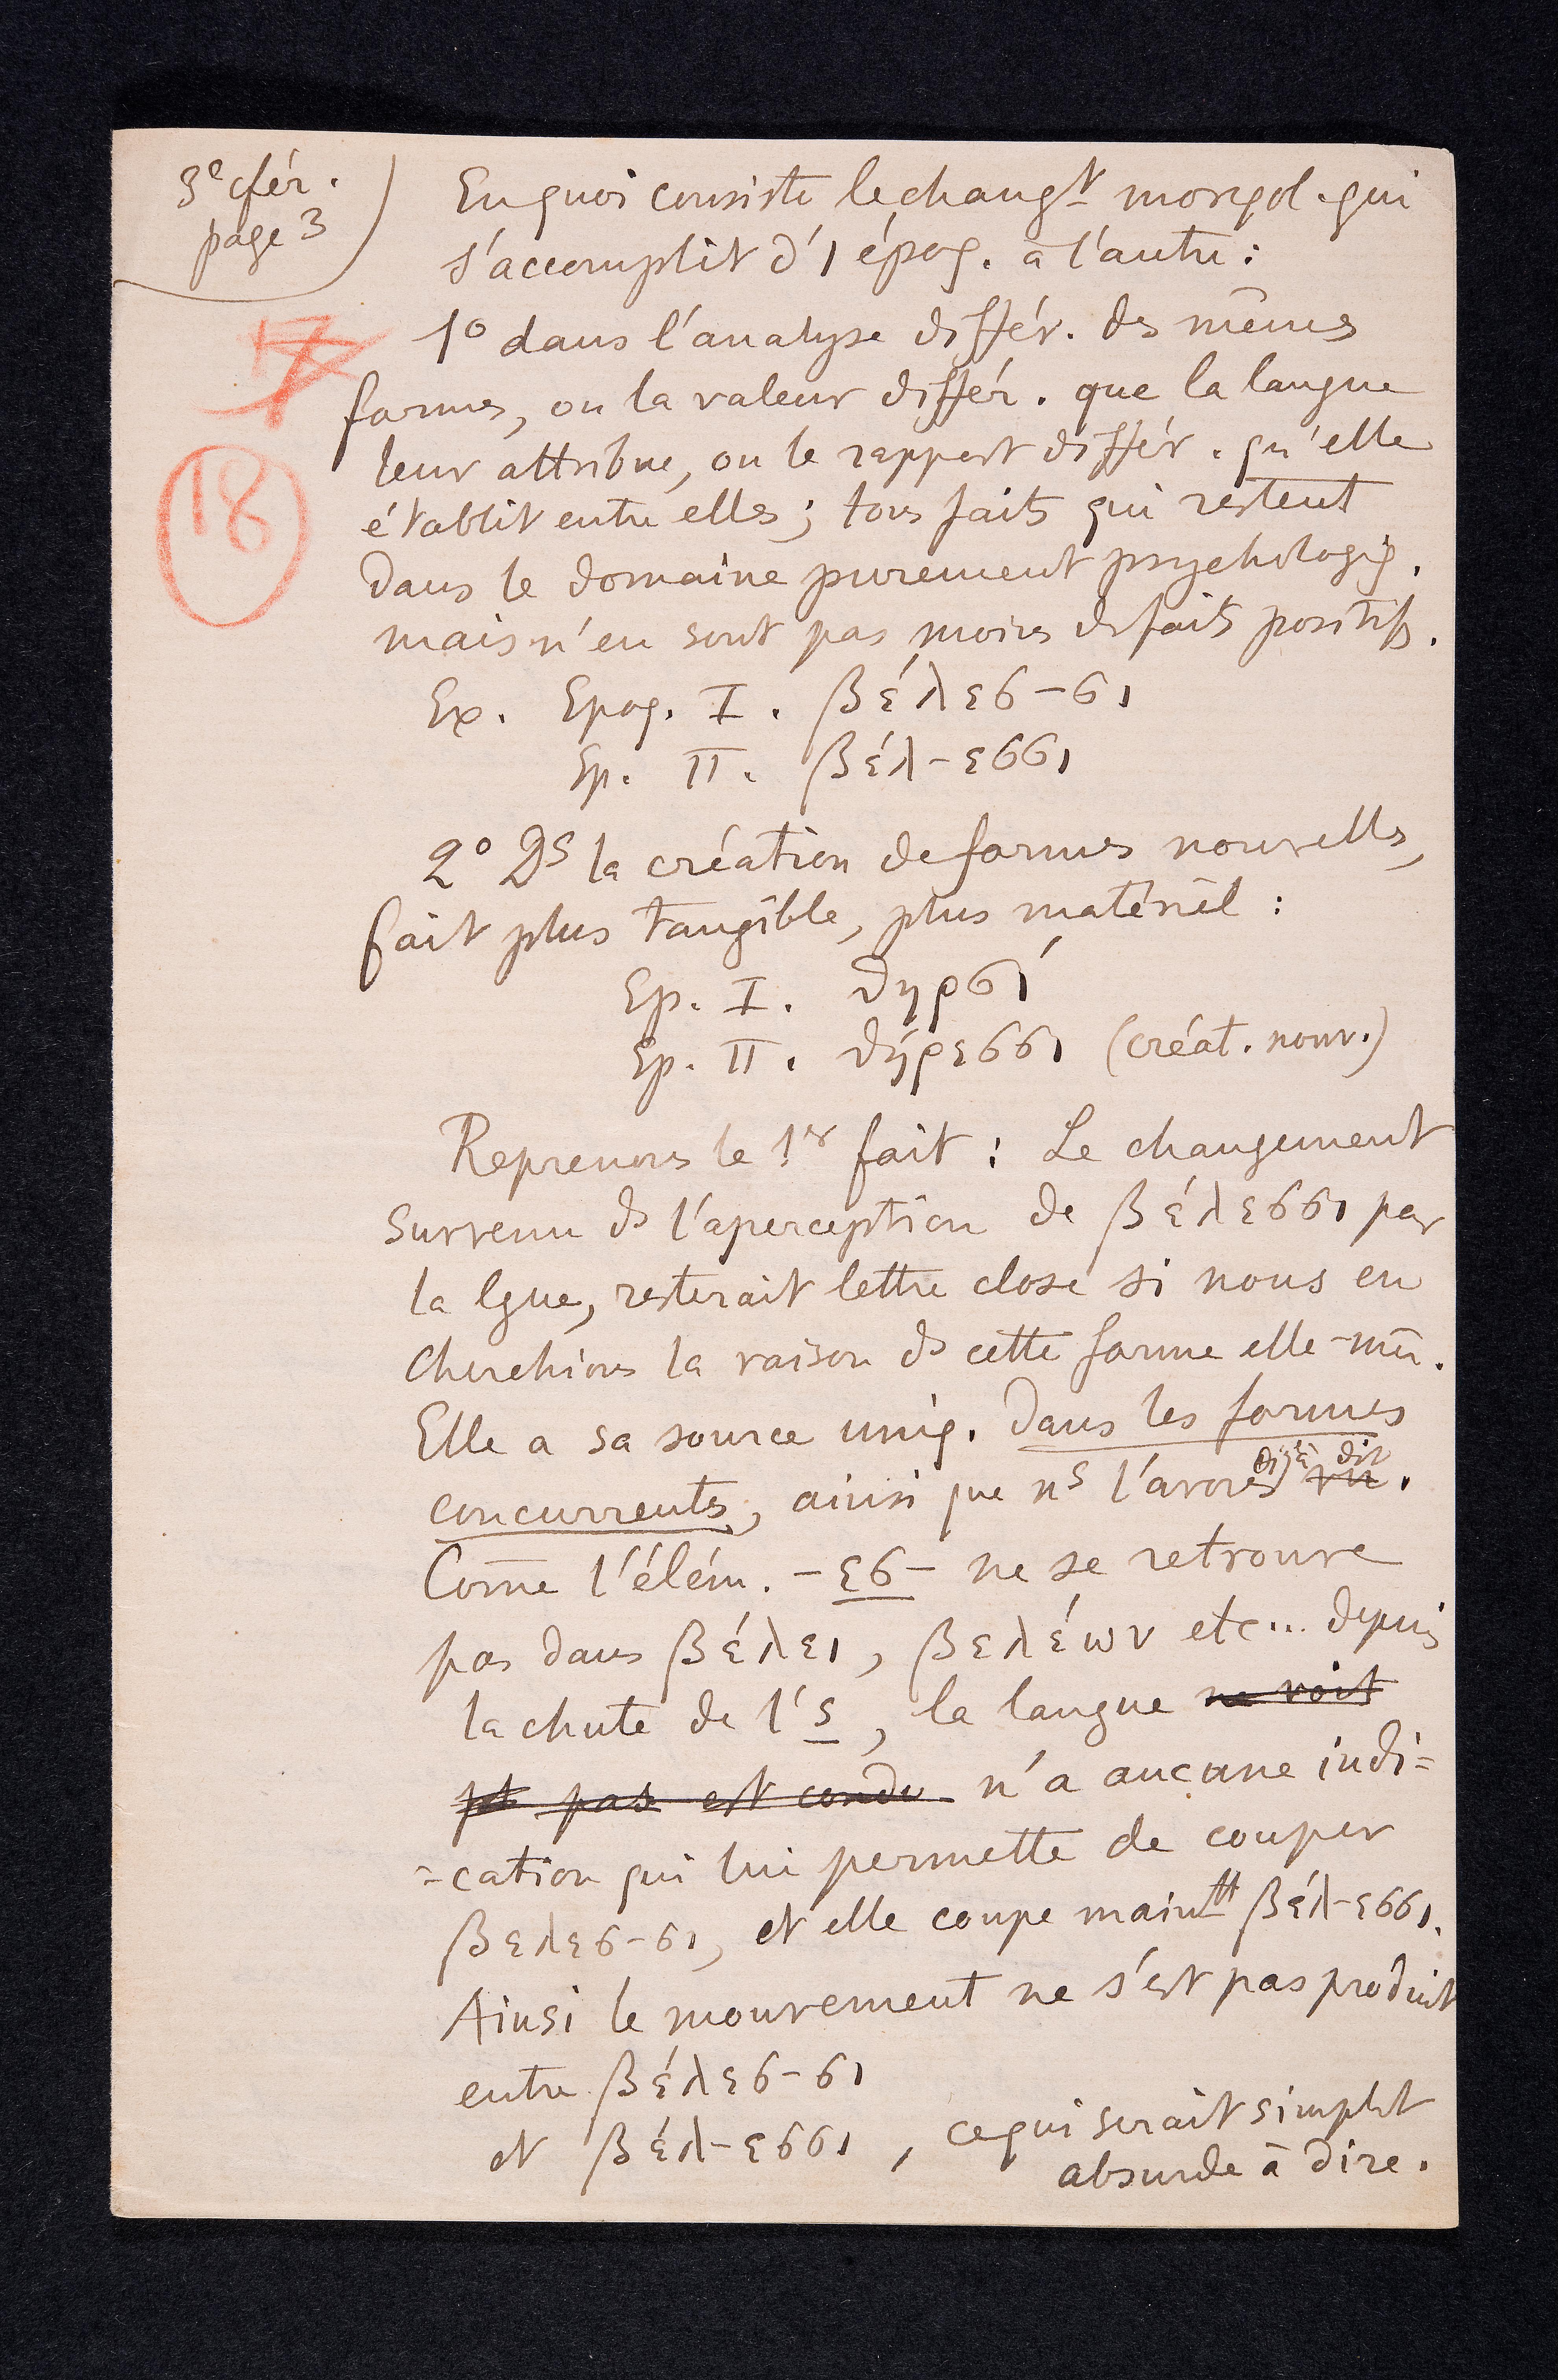 3e cfér.
page 3
17
18
En quoi consiste le changt morphol. qui
s'accomplit d'1 époq. à l'autre :
1o dans l'analyse différ. des mêmes
formes, ou la valeur différ. que la langue
leur attribue, ou le rapport différ. qu'elle
établit entre elles ; tous faits qui restent
dans le domaine purement psychologiq.
mais n'en sont pas moins des faits positifs.
Ex. Epoq. I. βέλεσ-σι
Ep. II. βέλ-εσσι
2o Ds la création de formes nouvelles,
fait plus tangible, plus matériel :
Ep. I. θηρσί
Ep. II. θήρεσσι (créat. nouv.)
Reprenons le 1er fait : Le changement
survenu ds l'aperception de βέλεσσι par
la lgue, resterait lettre close si nous en
cherchions la raison ds cette forme elle-mê.
Elle a sa source uniq. dans les formes
concurrentes, ainsi que ns l'avons déjà dit vu.
Come l'élém. -εσ- ne se retrouve
pas dans βέλει, βελέων etc... depuis
la chute de l's, la langue ne voit
pt pas est condu n'a aucune indi=
=cation qui lui permette de couper
βελεσ-σι, et elle coupe maintt βέλ-εσσι.
Ainsi le mouvement ne s'est pas produit
entre βέλεσ-σι
et βέλ-εσσι, ce qui serait simplt
absurde à dire.